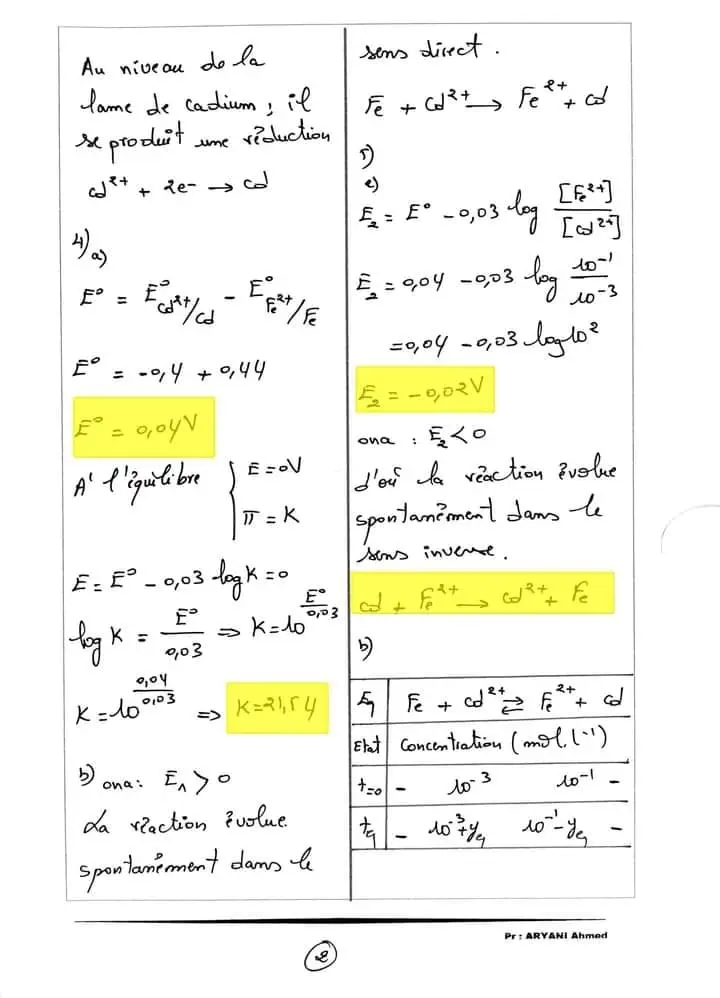 Au niveau de la
lame de cadium, il
se produit une réduction
cd²⁺ + 2e⁻ → cd
4) a)
E° = E°cd²⁺/cd - E°Fe²⁺/Fe
E° = -0,4 + 0,44
E° = 0,04V
A' l'équilibre { E = 0V
π = K
E = E° - 0,03 log K = 0
log K = E°/0,03 ⇒ K = 10^(E°/0,03)
K = 10^(0,04/0,03) ⇒ K = 21,54
b) ona : E₁ > 0
La réaction évolue
spontanément dans le
sens direct.
Fe + Cd²⁺ → Fe²⁺ + cd
5)
a)
E₂ = E° - 0,03 log [Fe²⁺]/[cd²⁺]
E₂ = 0,04 - 0,03 log 10⁻¹/10⁻³
= 0,04 - 0,03 log 10²
E₂ = -0,02V
ona : E₂ < 0
d'où la réaction évolue
spontanément dans le
sens inverse.
cd + Fe²⁺ → cd²⁺ + Fe
b)
Eq Fe + cd²⁺ ⇌ Fe²⁺ + cd
Etat Concentration (mol.l⁻¹)
t=0 - 10⁻³ 10⁻¹ -
tq - 10⁻³+yq 10⁻¹-yq -
Pr : ARYANI Ahmed
2